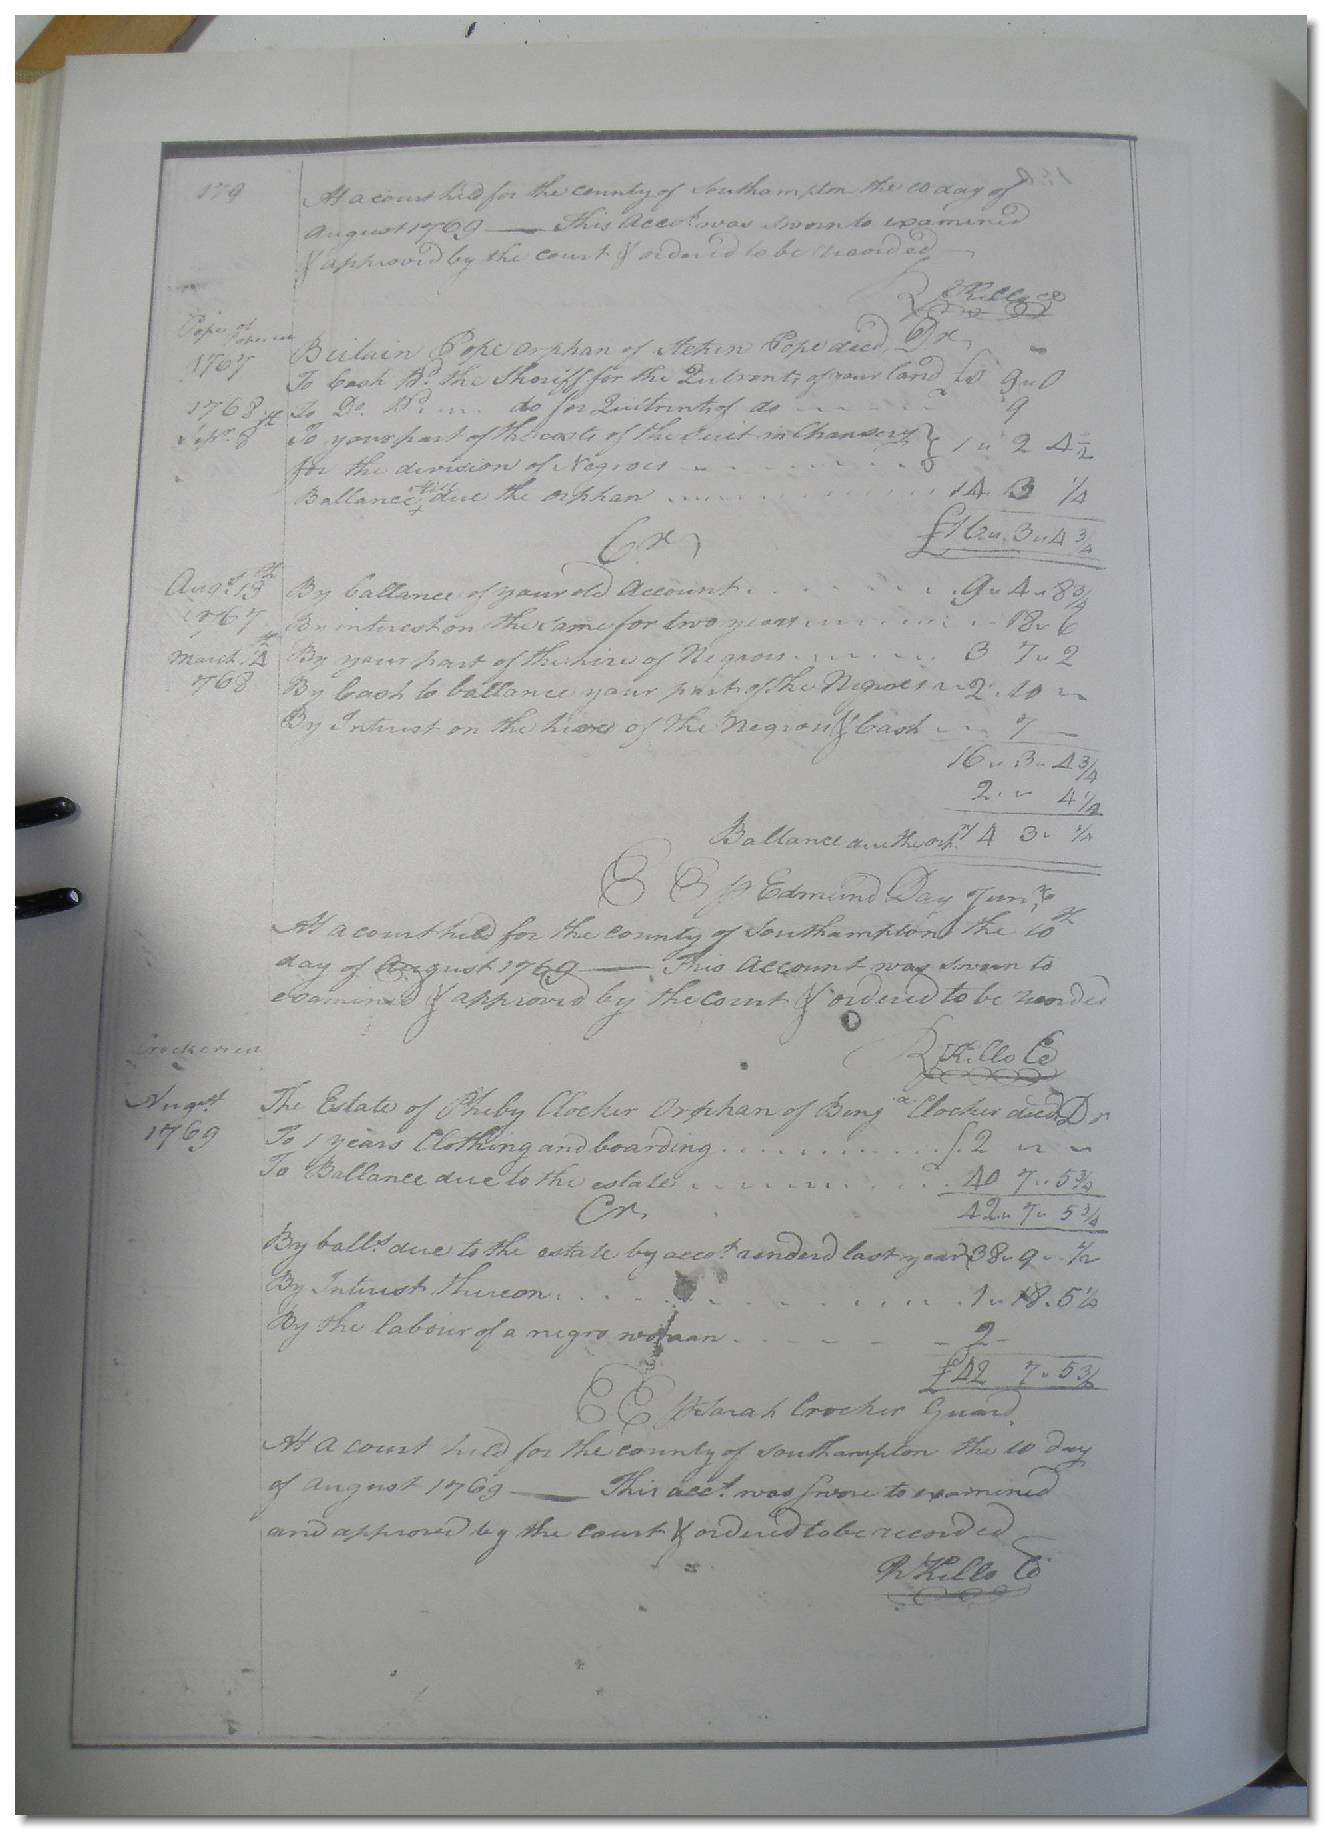 179
At a court held for the county of Southampton the 10 day of
August 1769 — This Accot. was sworn to examined
& approved by the court & ordered to be recorded
R Kello
Pope
1767
Britain Pope orphan of Pope decd. Dr
To Cash pd. the Sheriff for the Quitrents of your land £0 9 0
1768
To Do. pd. .... do for Quitrents of do 9
8
To your part of the costs of the Suit in Chancery } 1 " 2 4½
for the division of Negroes
Ballance still due the orphan 14 3 ¼
£16 " 3 " 4¾
Cr
Augt. 13th
By ballance of your old Account 9 " 4 " 8¾
1767
By interest on the same for two years 18 " 6
March 14th
By your part of the hire of Negroes 3 7 " 2
768
By Cash to ballance your part of the Negroes 2 . 10 "
By Interest on the hires of the Negroes & Cash 7 —
16 " 3 " 4¾
2 " " 4½
Ballance due the orp. 14 3 " ¼
E E p Edmund Day Junr.
At a court held for the county of Southampton the 10th
day of August 1769 — This Account was sworn to
examined & approved by the court & ordered to be recorded
R Kello Co
Augst
1769
The Estate of Pheby Clocker Orphan of Benja. Clocker decd. Dr
To 1 years Clothing and boarding £ 2 " "
To Ballance due to the estate 40 7 " 5¾
42 " 7 " 5¾
Cr.
By balls. due to the estate by accot. renderd last year 38 " 9 " ½
By Interest thereon 1 " 18 . 5¼
By the labour of a negro woman 2 -
£42 7 " 5¾
E E p Sarah Crocker Guard.
At a court held for the county of Southampton the 10 day
of August 1769 — This acct. was swore to examined
and approved by the court & ordered to be recorded
R Kello Co